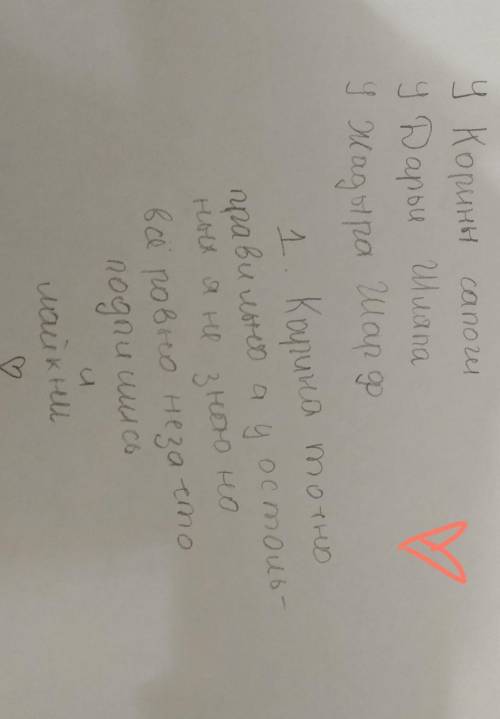 У Корины сапоги
У Дарьи Шляпа
У Жадыра Шарф
1. Карина точно
правильно а у осталь-
ных я не знаю но
всё ровно незачто
подпишись
и
лайкни